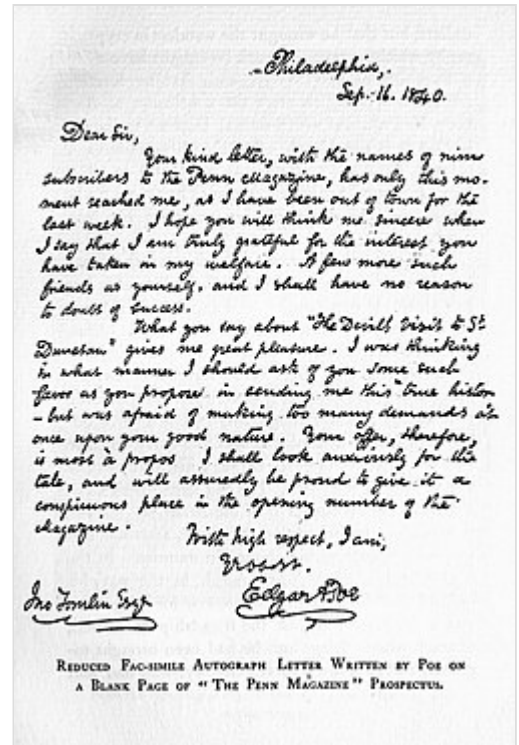 Philadelphia,
Sep. 16. 1840.
Dear Sir,
Your kind letter, with the names of nine
subscribers to the Penn Magazine, has only this mo-
ment reached me, as I have been out of town for the
last week. I hope you will think me sincere when
I say that I am truly grateful for the interest you
have taken in my welfare. A few more such
friends as yourself, and I shall have no reason
to doubt of success.
What you say about "The Devil's Visit to St
Dunstan" gives me great pleasure. I was thinking
in what manner I should ask of you some such
favor as you propose in sending me this "true histor
- but was afraid of making too many demands at
once upon your good nature. Your offer, therefore,
is most à propos I shall look anxiously for the
tale, and will assuredly be proud to give it a
conspicuous place in the opening number of the
Magazine.
With high respect, I am,
Yr Ob St.
Jno Tomlin Esqr
Edgar A Poe
REDUCED FAC-SIMILE AUTOGRAPH LETTER WRITTEN BY POE ON
A BLANK PAGE OF "THE PENN MAGAZINE" PROSPECTUS.